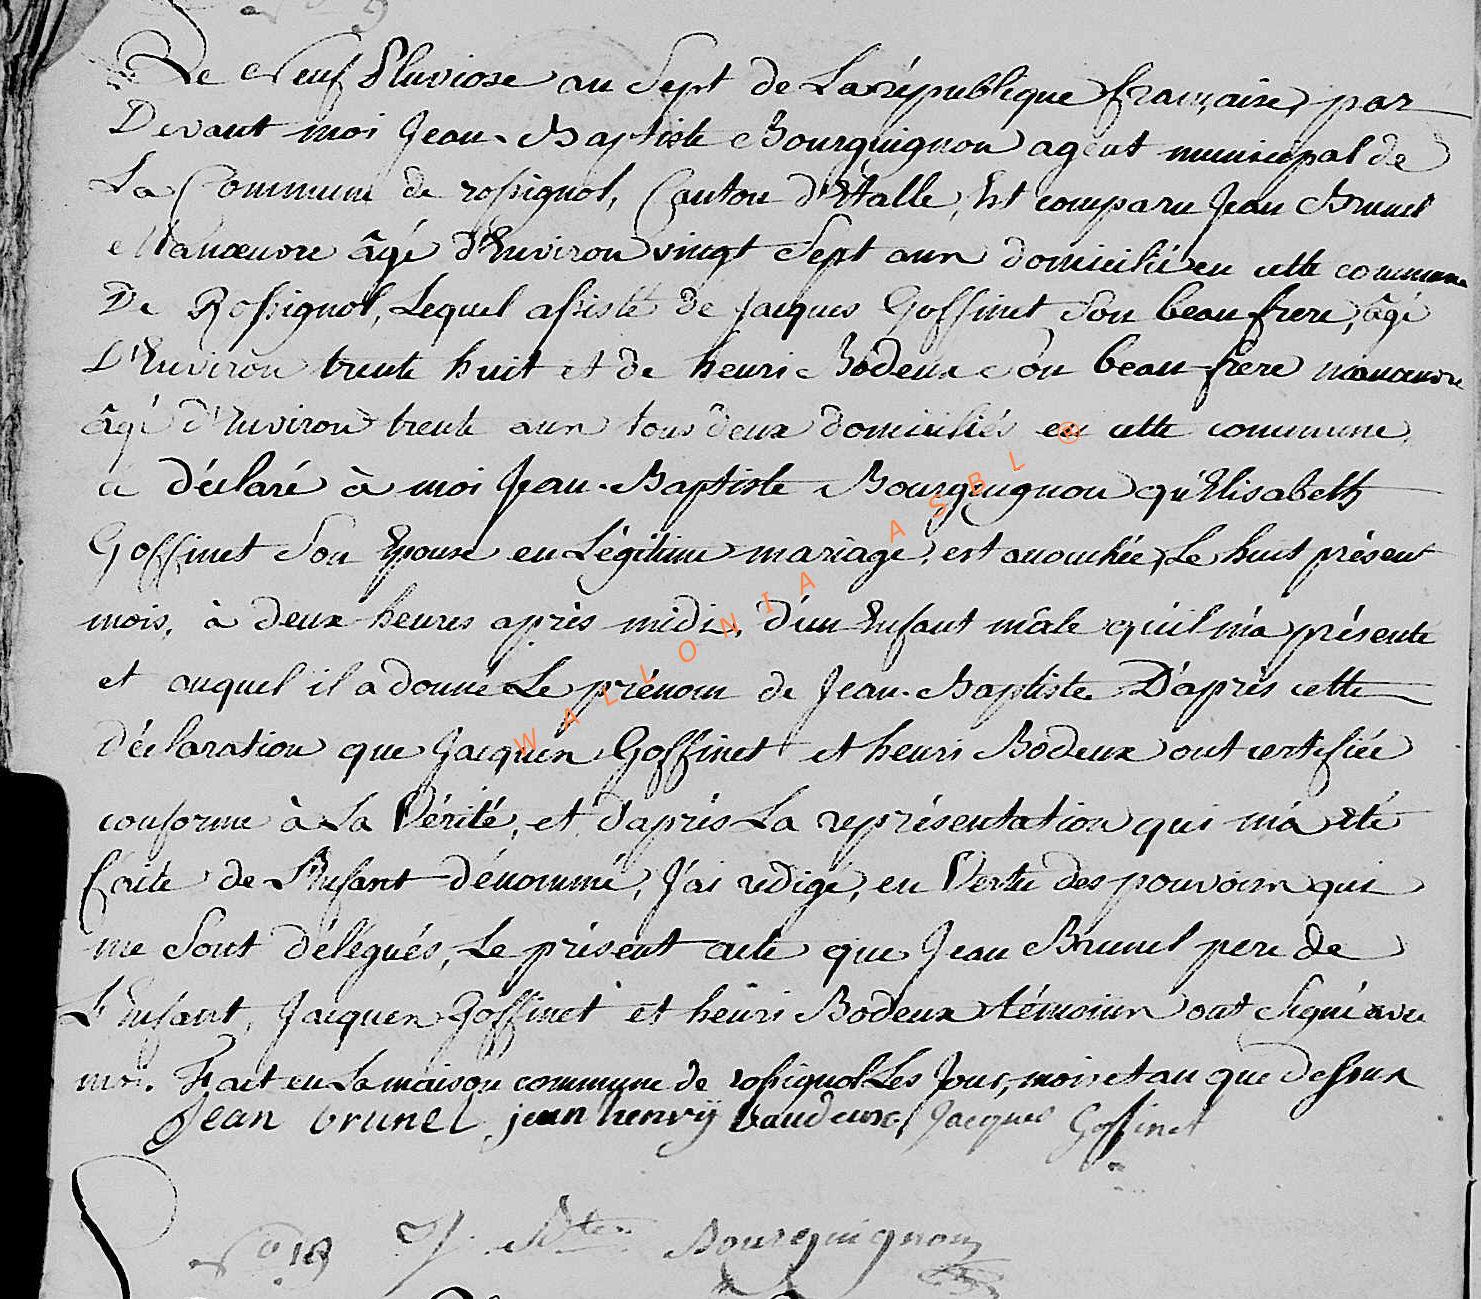 Le Neuf Pluviose an Sept de La république française, par
Devant moi Jean-Baptiste Bourguignon agent municipal de
La Commune de rossignol, Canton d'Etalle, Est comparu Jean Brunel
Manœuvre âgé d'Environ vingt Sept ans domicilié en cette commune
De Rossignol, Lequel assisté de Jacques Goffinet Son beau frere, âgé
D'Environ trente huit et de henri Bodeux Son beau frere manœuvre
âgé d'Environ trente ans tous deux domiciliés en cette commune,
a déclaré à moi Jean-Baptiste Bourguignon qu'Elisabeth
Goffinet Son Epouse en Légitime mariage, est accouchée, Le huit présent
mois, à deux heures après midi, d'un Enfant mâle qu'il m'a présenté
et auquel il a donné Le prénom de Jean-Baptiste. D'après cette
déclaration que Jacques Goffinet et henri Bodeux ont certifiée
conforme à La Vérité, et d'après La représentation qui m'a été
faite de L'Enfant dénommé, J'ai redigé, en Vertu des pouvoirs qui
me Sont délégués, Le présent acte que Jean Brunel pere de
L'Enfant, Jacques Goffinet et henri Bodeux témoins ont Signé avec
moi. Fait en La maison commune de rossignol Les Jour, mois et an que dessus
Jean brunel jean henrÿ baudeux Jacques Goffinet
J. Bte Bourguignon
No 10
WALLONIA ASBL ®